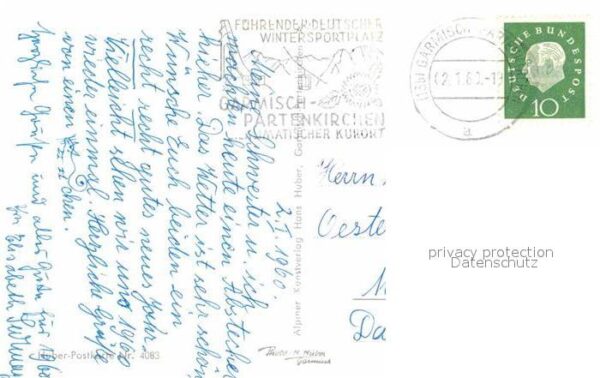 FÜHRENDER DEUTSCHER
WINTERSPORTPLATZ
GARMISCH-
PARTENKIRCHEN
KLIMATISCHER KURORT
GARMISCH-PART
2.1.60.-1
a
DEUTSCHE BUNDESPOST
10
2. I. 1960.
Meine Schwester u. ich
machten heute einen Abstecher
hieher. Das Wetter ist sehr schön.
Wünsche Euch beiden ein
recht recht gutes neues Jahr.
Vielleicht sehen wir uns 1960
wieder einmal. Herzliche Grüße
von einem chen.
Herzliche Grüße und alles Gute für 1960
Elisabeth
Herrn
Oeste
M
Da
Alpiner Kunstverlag Hans Huber, Garmisch-Partenkirchen
Huber-Postkarte Nr. 4083
Photo H. Huber
Garmisch
privacy protection
Datenschutz